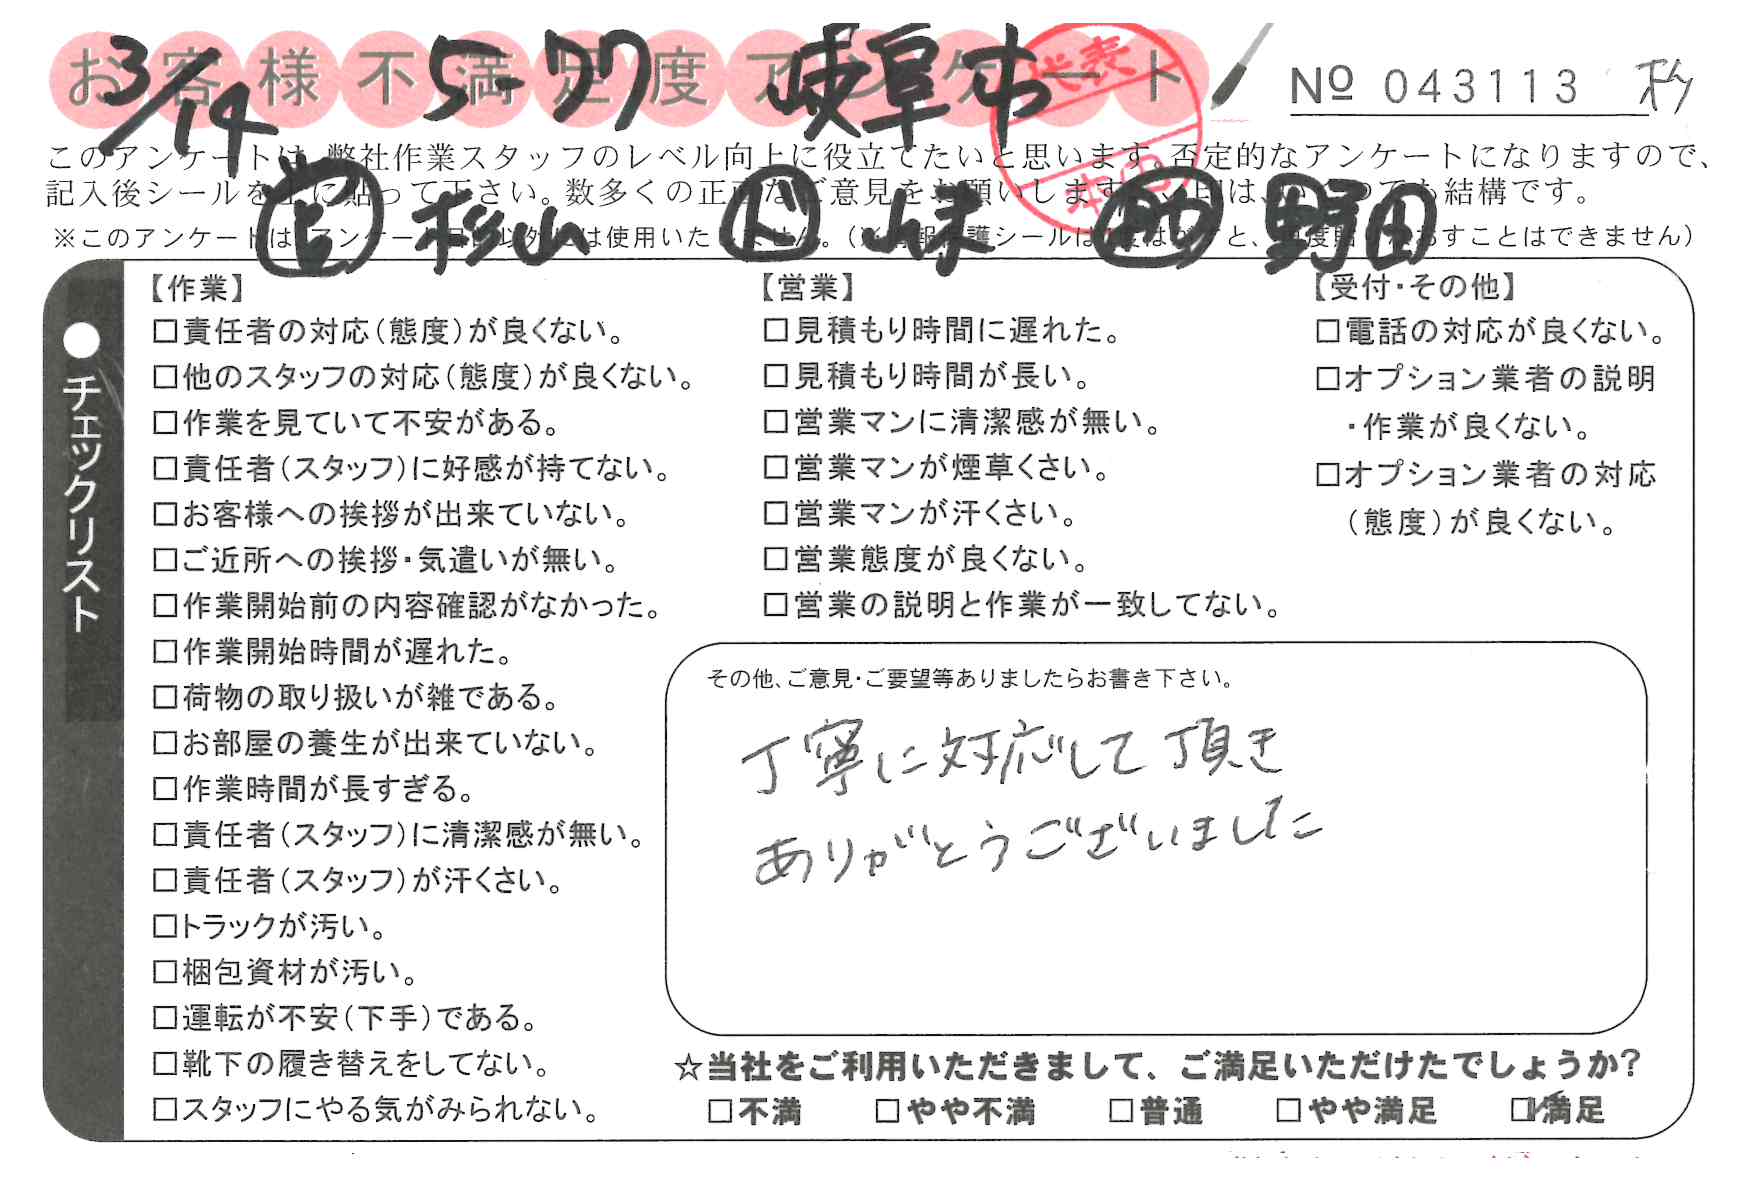 お客様不満足度アンケート
3/14 5-77 岐阜市
No 043113
このアンケートは、弊社作業スタッフのレベル向上に役立てたいと思います。否定的なアンケートになりますので、
記入後シールを上に貼って下さい。数多くの正直なご意見をお願いします。
杉山 野田
【作業】
□責任者の対応(態度)が良くない。
□他のスタッフの対応(態度)が良くない。
□作業を見ていて不安がある。
□責任者(スタッフ)に好感が持てない。
□お客様への挨拶が出来ていない。
□ご近所への挨拶・気遣いが無い。
□作業開始前の内容確認がなかった。
□作業開始時間が遅れた。
□荷物の取り扱いが雑である。
□お部屋の養生が出来ていない。
□作業時間が長すぎる。
□責任者(スタッフ)に清潔感が無い。
□責任者(スタッフ)が汗くさい。
□トラックが汚い。
□梱包資材が汚い。
□運転が不安(下手)である。
□靴下の履き替えをしてない。
□スタッフにやる気がみられない。
【営業】
□見積もり時間に遅れた。
□見積もり時間が長い。
□営業マンに清潔感が無い。
□営業マンが煙草くさい。
□営業マンが汗くさい。
□営業態度が良くない。
□営業の説明と作業が一致してない。
【受付・その他】
□電話の対応が良くない。
□オプション業者の説明
・作業が良くない。
□オプション業者の対応
(態度)が良くない。
●チェックリスト
その他、ご意見・ご要望等ありましたらお書き下さい。
丁寧に対応して頂き
ありがとうございました
☆当社をご利用いただきまして、ご満足いただけたでしょうか?
□不満 □やや不満 □普通 □やや満足 ☑満足